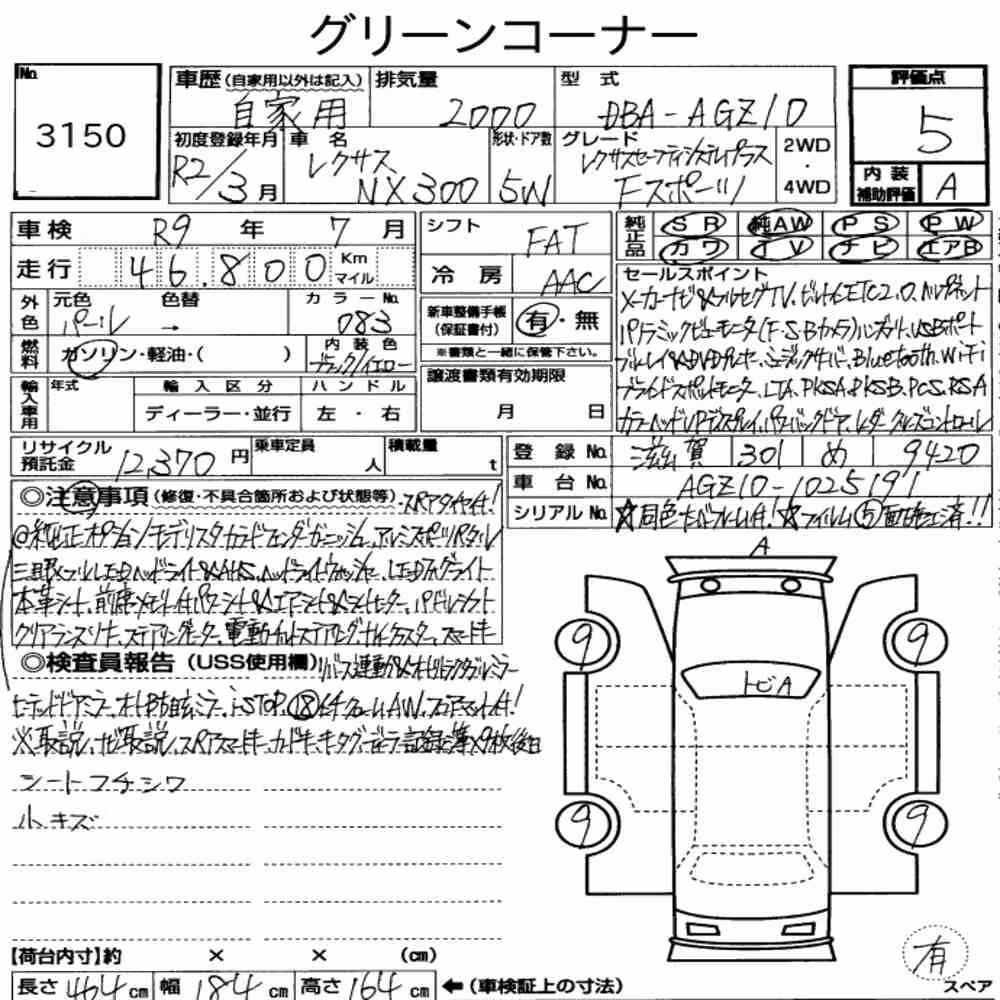 グリーンコーナー
No.
3150
車歴(自家用以外は記入)
自家用
排気量
2000
型式
DBA-AGZ10
評価点
5
内装補助評価
A
初度登録年月
R2/3月
車名
レクサス
NX300
形状・ドア数
5W
グレード
レクサスセーフティシステムプラス
Fスポーツ
2WD
・
4WD
車検 R9年 7月
走行 46,800 Km マイル
外色
元色 パール
色替 →
カラーNo. 083
燃料
ガソリン・軽油・( )
内装色 ブラック/イエロー
輸入車用
年式
輸入区分
ディーラー・並行
ハンドル
左・右
シフト FAT
冷房 AAC
新車整備手帳(保証書付) 有・無
※書類と一緒に保管下さい。
譲渡書類有効期限
月 日
純正品
SR 純AW PS PW
カワ TV ナビ エアB
セールスポイント
メーカーナビ&フルセグTV、ビルトインETC2.0、ヘルプネット
パノラミックビューモニタ(F・S・Bカメラ)ルーフレール、USBポート
ブルーレイ&DVDプレーヤー、ミュージックサーバー、Bluetooth、WiFi
ブラインドスポットモニター、LTA、PKSA&PKSB、PCS、RSA
カラーヘッドUPディスプレイ、パワーバックドア、レーダークルーズコントロール
リサイクル預託金 12,370円
乗車定員 人
積載量 t
登録No. 滋賀 301 め 9420
車台No. AGZ10-1025191
シリアルNo. ☆同色ナンバーフレーム付!☆フィルム⑤面施工済!!
◎注意事項(修復・不具合箇所および状態等) スペアタイヤ付!
@純正オプションモデリスタカラードフェンダーガーニッシュ、アルミスポーツペダル
三眼フルLEDヘッドライト&AHS、ヘッドライトウォッシャー、LEDフォグライト
本革シート、前席メモリー付パワーシート&エアシート&シートヒーター、パドルシフト
クリアランスソナー、ステアリングヒーター、電動チルトステアリング、ナイタスター、スマートキー
◎検査員報告(USS使用欄) リバース連動&オートリトラクタブルミラー
ヒーテッドドアミラー、オート防眩ミラー、i-STOP、⑱インチクロームAW、フロアマット付!
※取説、ナビ取説、スペアスマートキー、カードキー、キータグ、ディーラー記録簿×9枚後日
シートフチシワ
小キズ
A
トビA
9
9
9
9
【荷台内寸】約 × × (cm)
長さ 464cm 幅 184cm 高さ 164cm ←(車検証上の寸法)
有
スペア